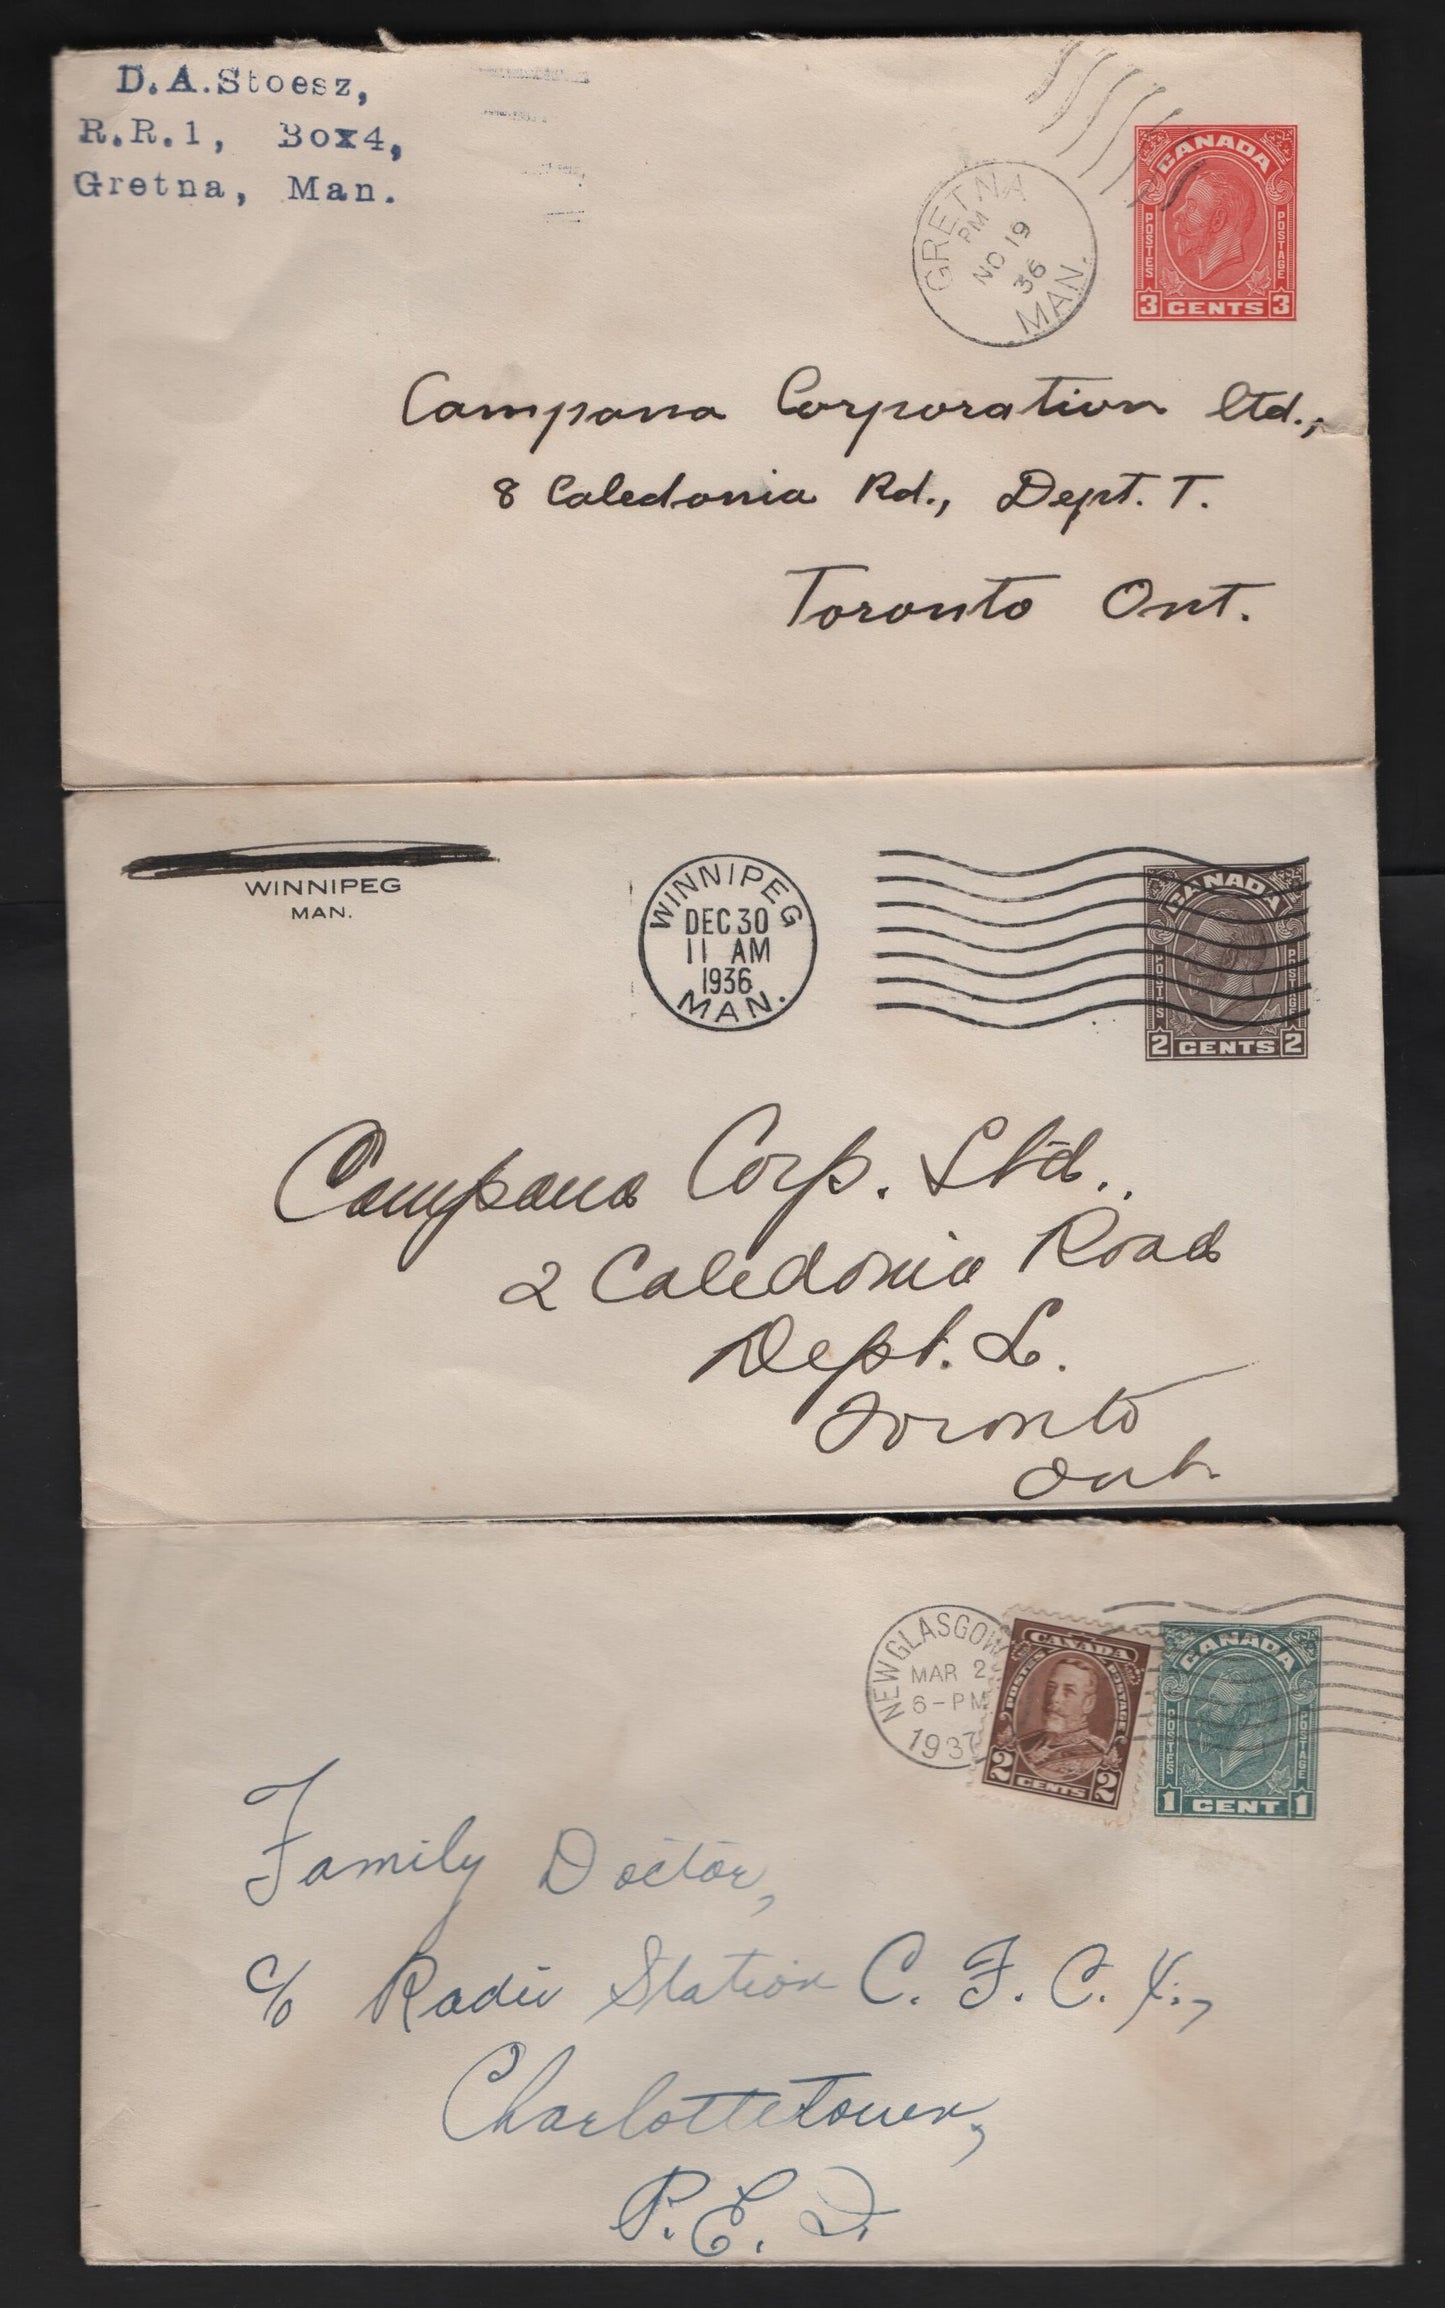 D.A.Stoesz,
R.R.1, Box4,
Gretna, Man.
GRETNA
PM
NO 19
36
MAN.
CANADA
POSTES
POSTAGE
3 CENTS 3
Campana Corporation Ltd.,
8 Caledonia Rd., Dept. T.
Toronto Ont.
WINNIPEG
MAN.
WINNIPEG
DEC 30
11 AM
1936
MAN.
CANADA
POSTES
POSTAGE
2 CENTS 2
Campana Corp. Ltd..
2 Caledonia Road
Dept. L.
Toronto
Ont.
NEW GLASGOW
MAR 2
6-PM
1937
CANADA
POSTES
POSTAGE
2 CENTS 2
CANADA
POSTES
POSTAGE
1 CENT 1
Family Doctor,
c/o Radio Station C. F. C. Y.,
Charlottetown,
P. E. I.